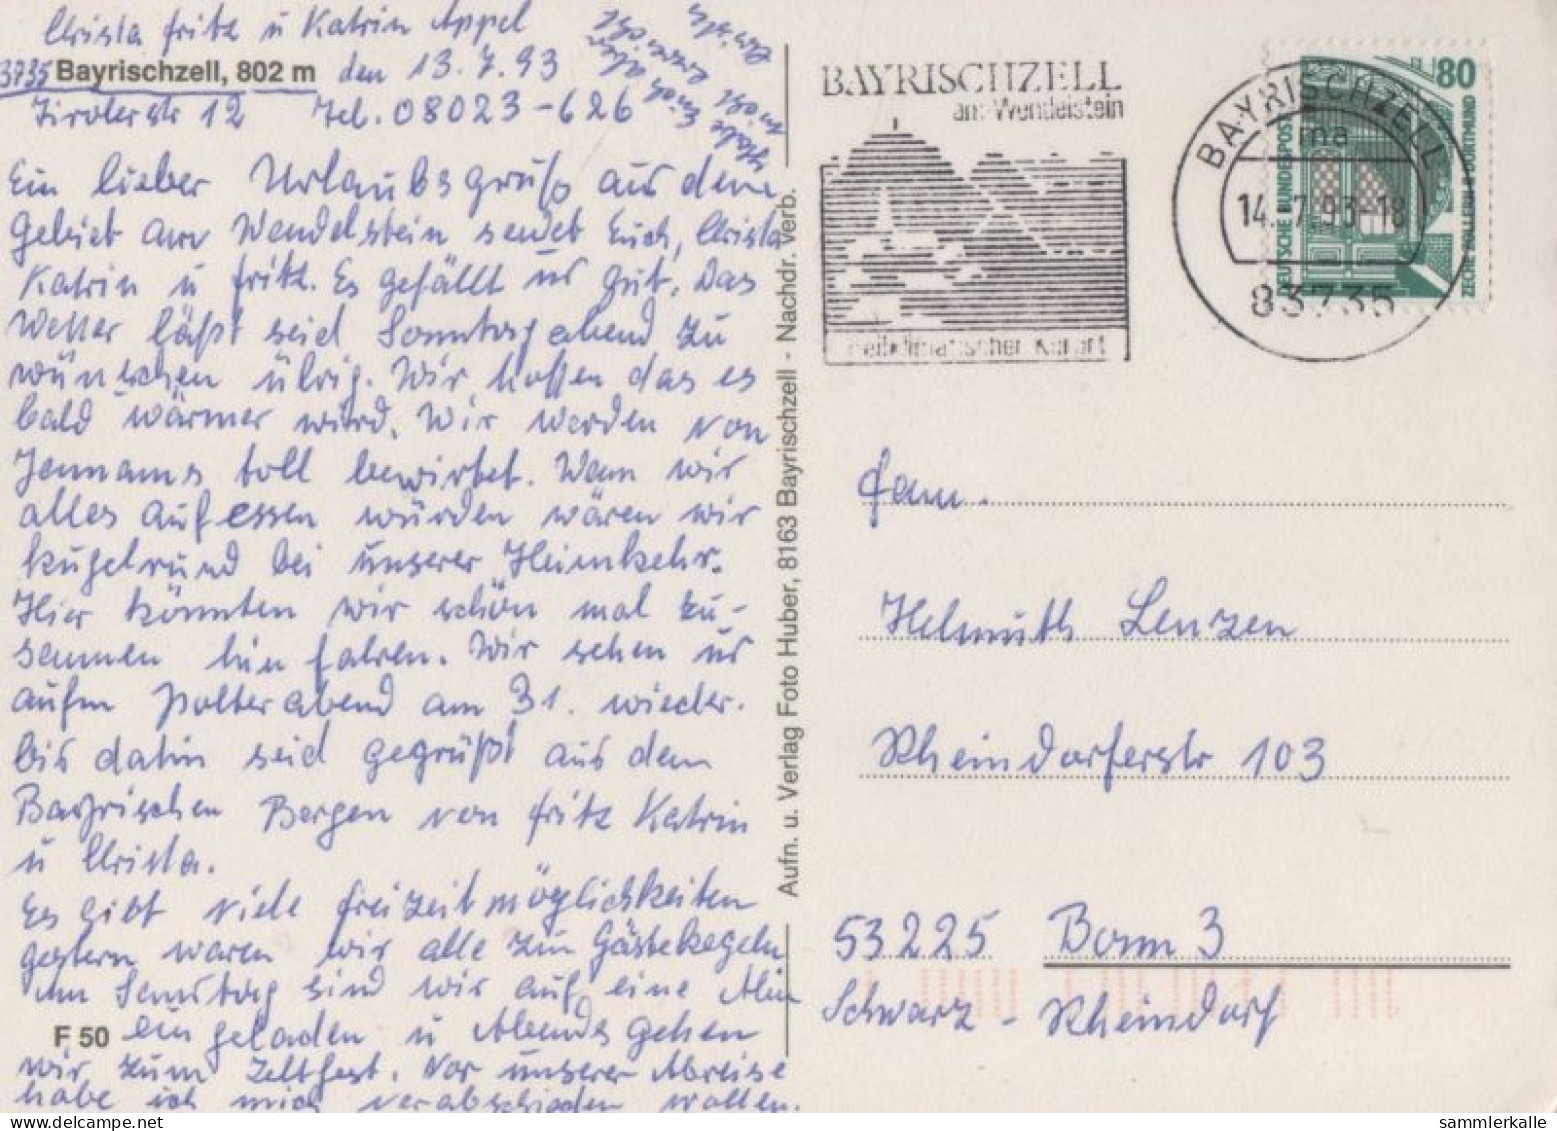 Christa Fritz u Katrin Appel
3735 Bayrischzell, 802 m den 13.7.93
Tirolerstr 12 Tel. 08023-626
Ein lieber Urlaubsgruß aus dem
Gebiet am Wendelstein sendet Euch, Christa
Katrin u Fritz. Es gefällt us gut. Das
Wetter läßt seid Sonntagabend zu
wünschen übrig. Wir hoffen das es
bald wärmer wird. Wir werden von
Jenmans toll bewirtet. Wenn wir
alles aufessen würden wären wir
kugelrund bei unserer Heimkehr.
Hier könnten wir schön mal zu-
sammen hin fahren. Wir sehen us
aufm Polterabend am 31. wieder.
bis dahin seid gegrüßt aus dem
Bayrischen Bergen von Fritz Katrin
u Christa.
Es gibt viele Freizeitmöglichkeiten
gestern waren wir alle zum Gästekegeln
am Samstag sind wir auf eine Alm
F 50 eingeladen u Abends gehen
wir zum Zeltfest. Vor unserer Abreise
habe ich mich verabschieden wollen.
Aufn. u. Verlag Foto Huber, 8163 Bayrischzell - Nachdr. verb.
BAYRISCHZELL
am Wendelstein
heilklimatischer Kurort
BAYRISCHZELL
ma
14.-7.93-18
83735
80
DEUTSCHE BUNDESPOST
ZECHE ZOLLERN II · DORTMUND
Fam.
Helmuth Lenzen
Rheindorferstr 103
53225 Bonn 3
Schwarz - Rheindorf
sammlerkalle